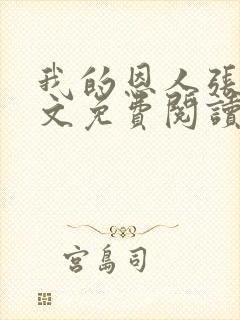 我的恩人張
文免費閱讀
宮島司